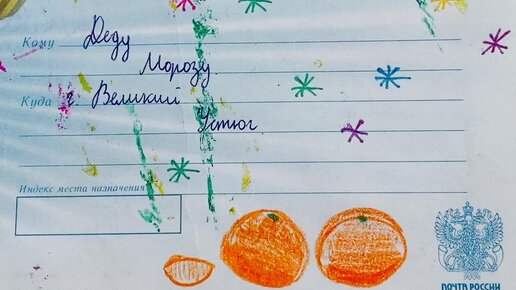 Кому Деду
Морозу
Куда г. Великий
Устюг
Индекс места назначения
ПОЧТА РОССИИ